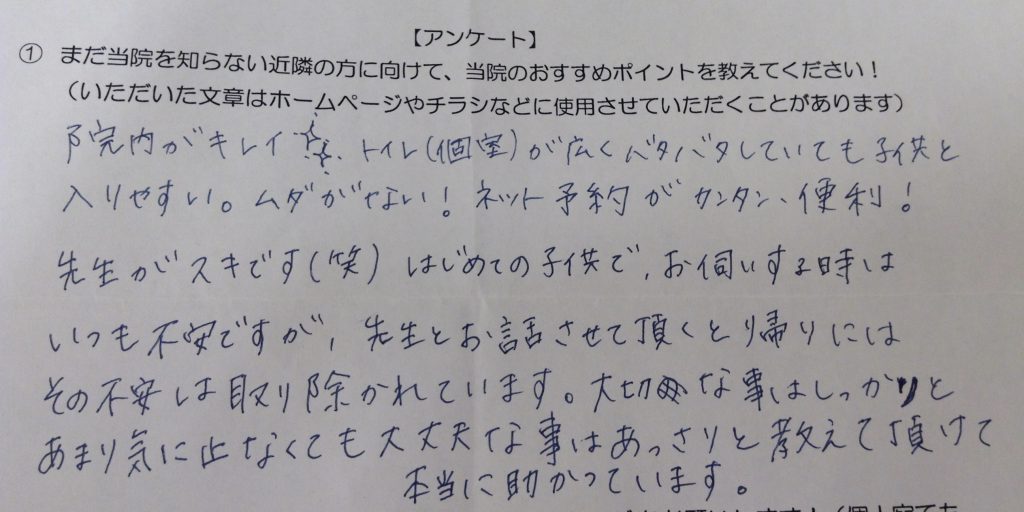 【アンケート】
① まだ当院を知らない近隣の方に向けて、当院のおすすめポイントを教えてください！
（いただいた文章はホームページやチラシなどに使用させていただくことがあります）
院内がキレイ☆☆ トイレ(個室)が広くバタバタしていても子供と
入りやすい。ムダがない！ ネット予約がカンタン、便利！
先生がスキです(笑) はじめての子供で、お伺いする時は
いつも不安ですが、先生とお話させて頂くと帰りには
その不安は取り除かれています。大切な事はしっかりと
あまり気に止なくても大丈夫な事はあっさりと教えて頂けて
本当に助かっています。